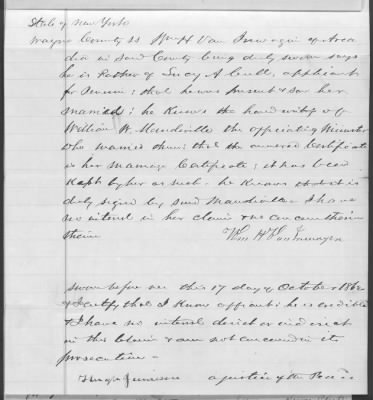 State of New York
Wayne County SS Wm H Van Inwagen of Arca
dia in said County being duly sworn says
he is Father of Lucy A applicant
for Pension; that he was present & saw her
married; he knows the hand write of
William W. Mandeville the officiating Minister
who married them; that the annexed Certificate
is her marriage Certificate; it has been
kept by her as such. he knows that it is
duly signed by said Mandeville I have
no interest in her claim & no concern
therein
Wm H Van Inwagen
sworn before me this 17 day of October 1862
& I certify that I know affiant; he is credible
& I have no interest direct or indirect
in this claim & am not concerned in its
prosecution -
a justice of the Peace